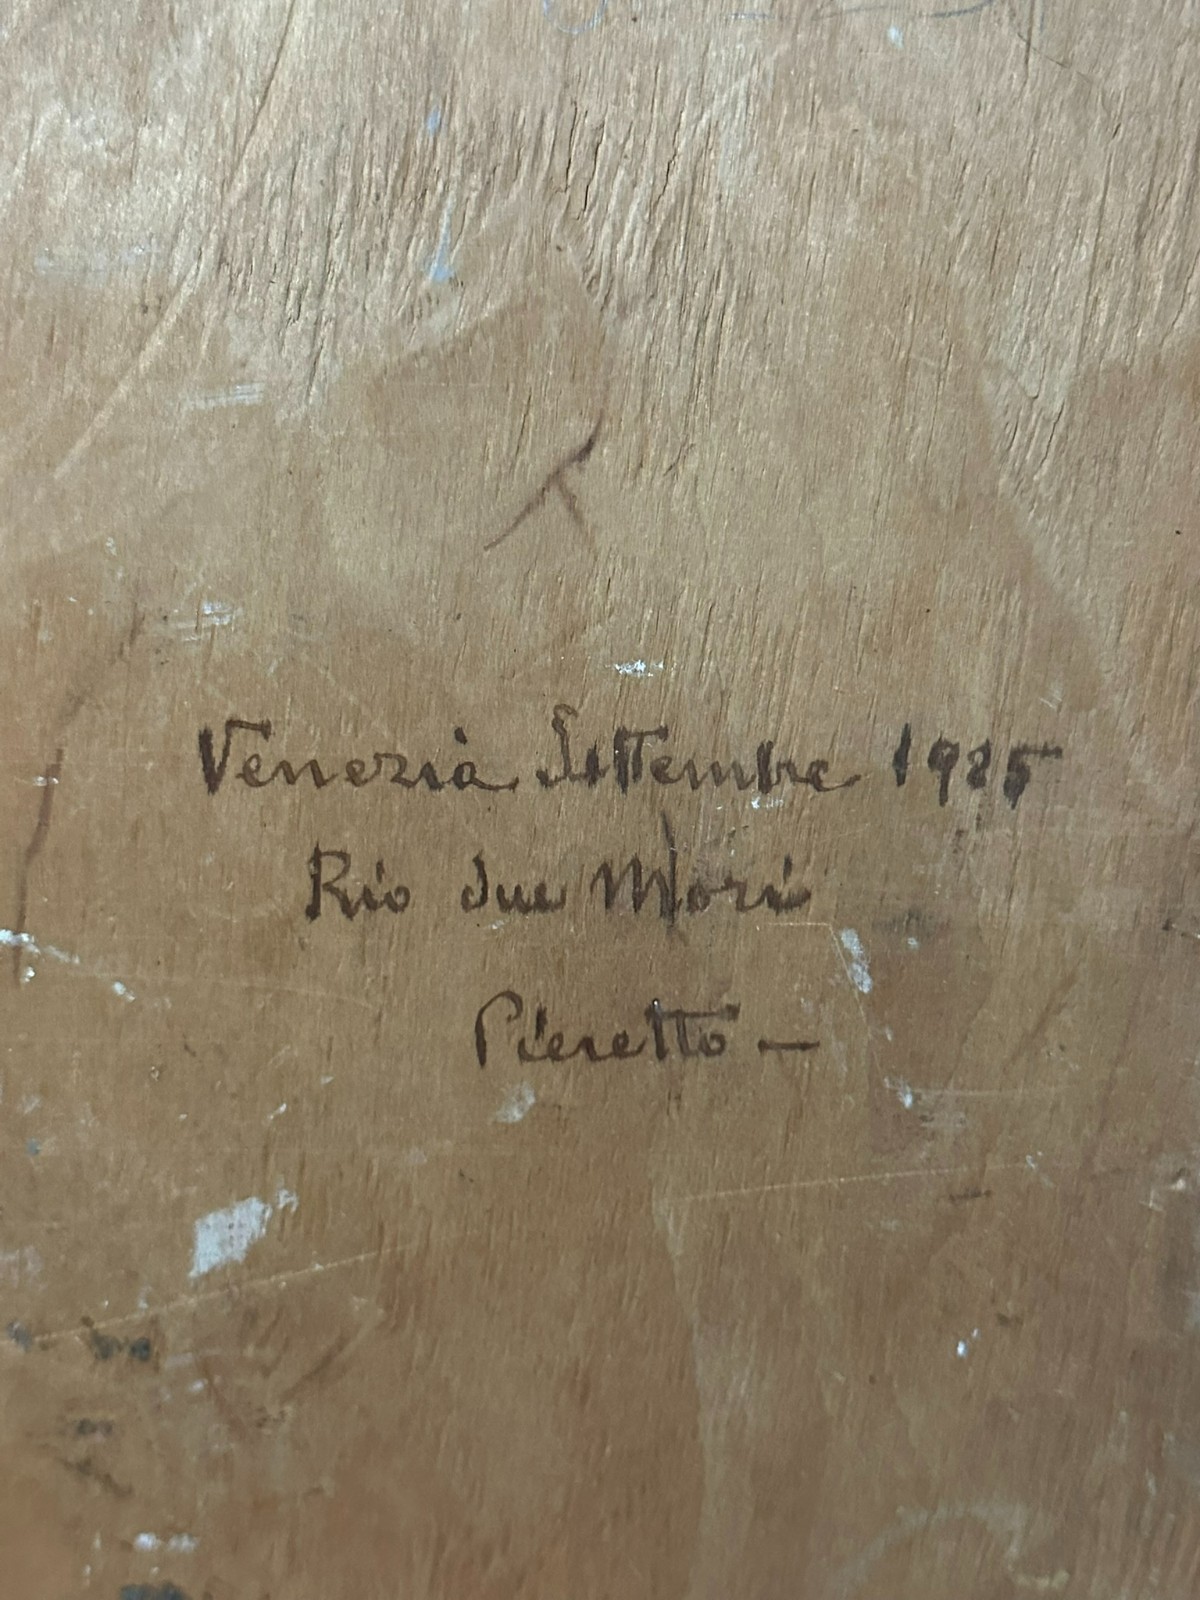 Venezia Settembre 1925
Rio due Mori
Pieretto —